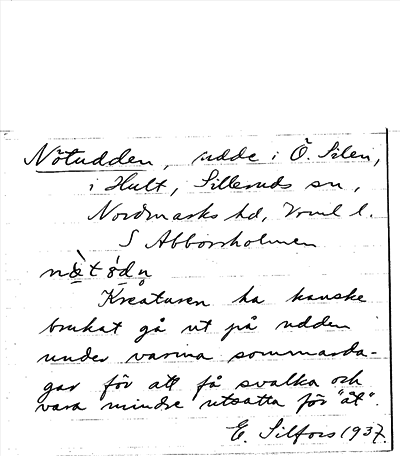 Nötudden, udde i Ö. Silen,
i Hult, Silleruds sn,
Nordmarks hd, Vrml l.
S Abborrholmen
nø̀t ó̤dn̥
Kreaturen ha kanske
brukat gå ut på udden
under varma sommarda-
gar för att få svalka och
vara mindre utsatta för "åt".
E. Silfors 1937.